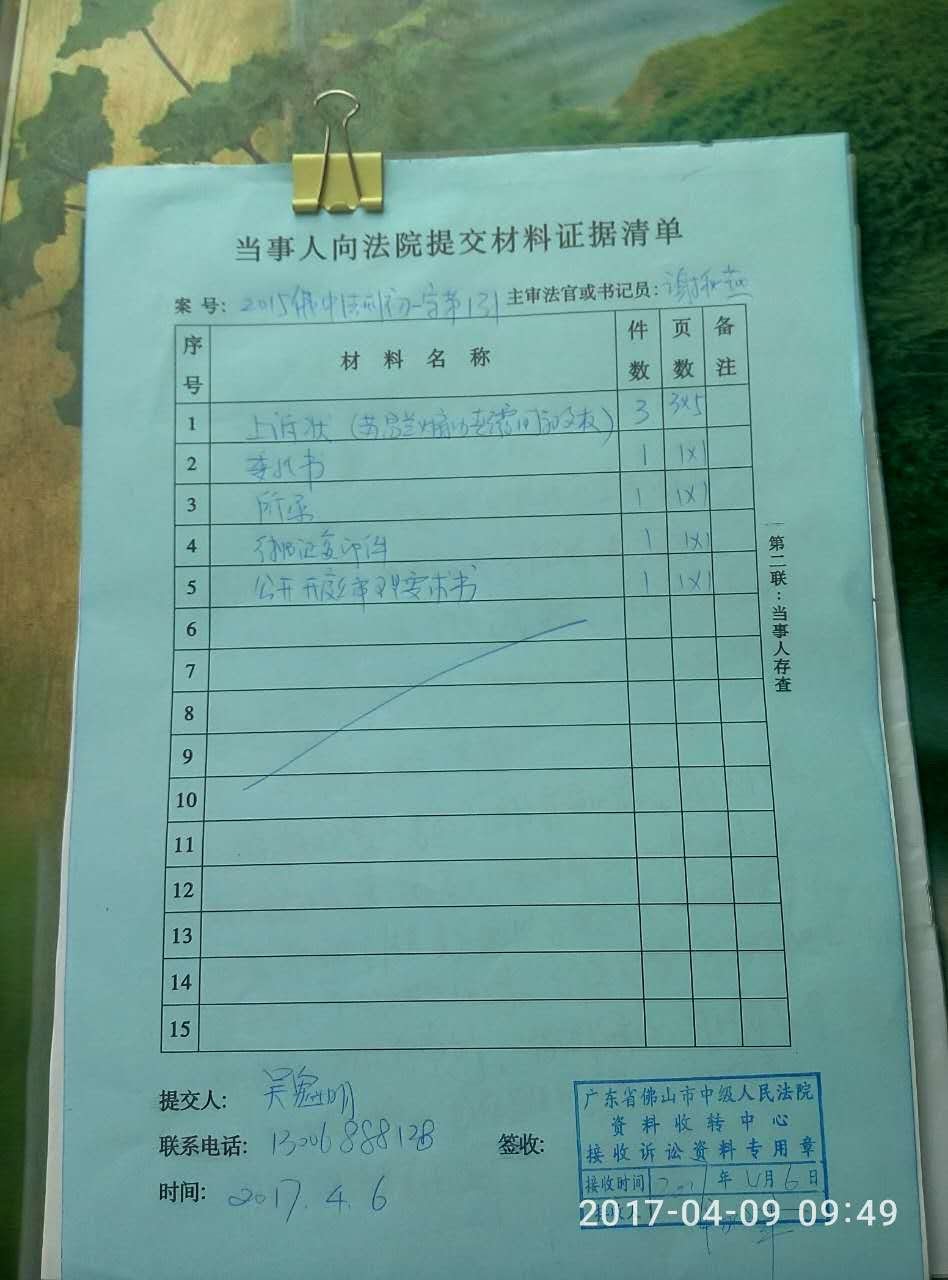 当事人向法院提交材料证据清单
案 号: 2015佛中法刑初字第131 主审法官或书记员: 谢
序号 材料名称 件数 页数 备注
1 上诉状 3 3×5
2 委托书 1 1×1
3 附录 1 1×1
4 行执证复印件 1 1×1
5 公开开庭审理要求书 1 1×1
6
7
8
9
10
11
12
13
14
15
第二联:当事人存查
提交人: 吴魁明
联系电话:
签收:
时间: 2017.4.6
广东省佛山市中级人民法院
资料收转中心
接收诉讼资料专用章
接收时间 2017年4月6日
2017-04-09 09:49